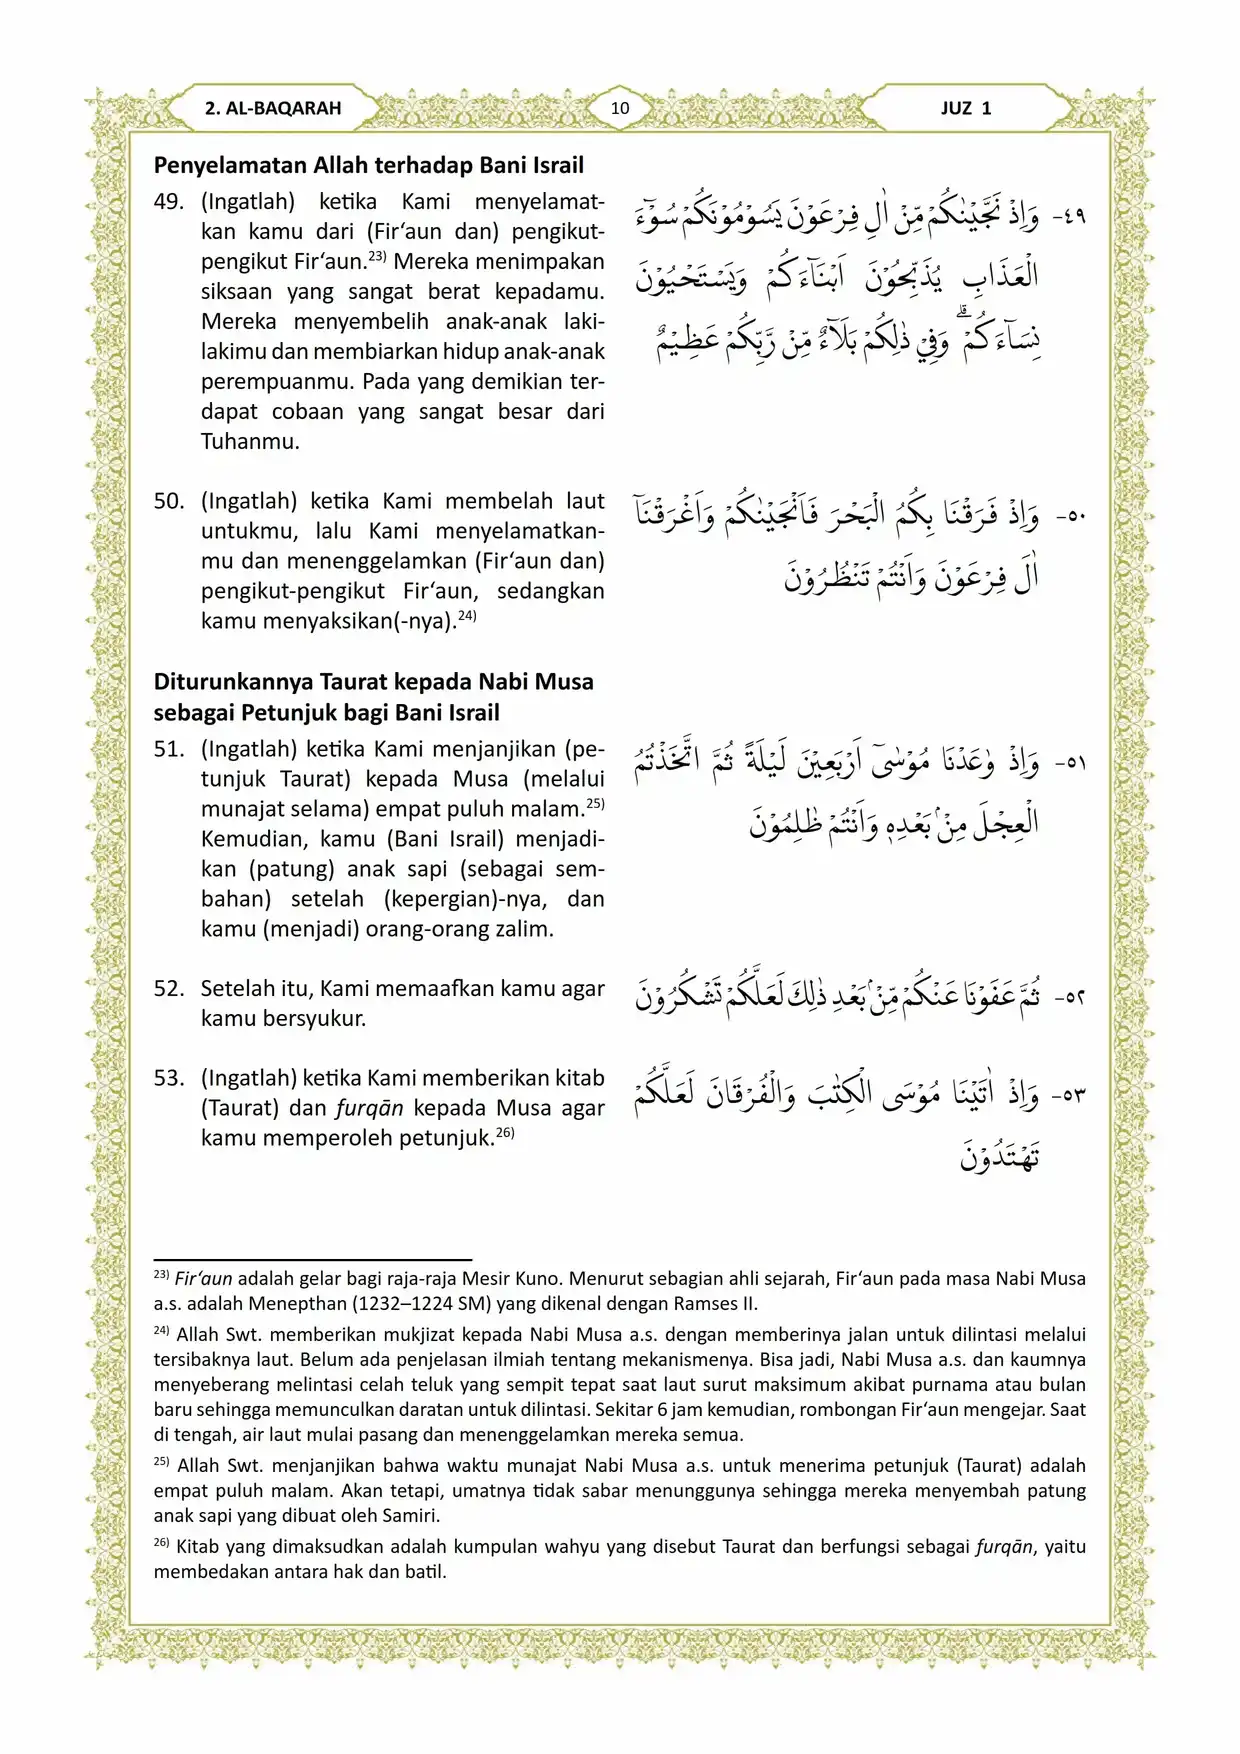 2. AL-BAQARAH
10
JUZ 1
Penyelamatan Allah terhadap Bani Israil
49. (Ingatlah) ketika Kami menyelamat-
kan kamu dari (Fir‘aun dan) pengikut-
pengikut Fir‘aun.23) Mereka menimpakan
siksaan yang sangat berat kepadamu.
Mereka menyembelih anak-anak laki-
lakimu dan membiarkan hidup anak-anak
perempuanmu. Pada yang demikian ter-
dapat cobaan yang sangat besar dari
Tuhanmu.
٤٩- وَاِذْ نَجَّيْنٰكُمْ مِّنْ اٰلِ فِرْعَوْنَ يَسُوْمُوْنَكُمْ سُوْۤءَ
الْعَذَابِ يُذَبِّحُوْنَ اَبْنَاۤءَكُمْ وَيَسْتَحْيُوْنَ
نِسَاۤءَكُمْ ۗ وَفِيْ ذٰلِكُمْ بَلَاۤءٌ مِّنْ رَّبِّكُمْ عَظِيْمٌ
50. (Ingatlah) ketika Kami membelah laut
untukmu, lalu Kami menyelamatkan-
mu dan menenggelamkan (Fir‘aun dan)
pengikut-pengikut Fir‘aun, sedangkan
kamu menyaksikan(-nya).24)
٥٠- وَاِذْ فَرَقْنَا بِكُمُ الْبَحْرَ فَاَنْجَيْنٰكُمْ وَاَغْرَقْنَآ
اٰلَ فِرْعَوْنَ وَاَنْتُمْ تَنْظُرُوْنَ
Diturunkannya Taurat kepada Nabi Musa
sebagai Petunjuk bagi Bani Israil
51. (Ingatlah) ketika Kami menjanjikan (pe-
tunjuk Taurat) kepada Musa (melalui
munajat selama) empat puluh malam.25)
Kemudian, kamu (Bani Israil) menjadi-
kan (patung) anak sapi (sebagai sem-
bahan) setelah (kepergian)-nya, dan
kamu (menjadi) orang-orang zalim.
٥١- وَاِذْ وٰعَدْنَا مُوْسٰىٓ اَرْبَعِيْنَ لَيْلَةً ثُمَّ اتَّخَذْتُمُ
الْعِجْلَ مِنْۢ بَعْدِهٖ وَاَنْتُمْ ظٰلِمُوْنَ
52. Setelah itu, Kami memaafkan kamu agar
kamu bersyukur.
٥٢- ثُمَّ عَفَوْنَا عَنْكُمْ مِّنْۢ بَعْدِ ذٰلِكَ لَعَلَّكُمْ تَشْكُرُوْنَ
53. (Ingatlah) ketika Kami memberikan kitab
(Taurat) dan furqān kepada Musa agar
kamu memperoleh petunjuk.26)
٥٣- وَاِذْ اٰتَيْنَا مُوْسَى الْكِتٰبَ وَالْفُرْقَانَ لَعَلَّكُمْ
تَهْتَدُوْنَ
23) Fir‘aun adalah gelar bagi raja-raja Mesir Kuno. Menurut sebagian ahli sejarah, Fir‘aun pada masa Nabi Musa
a.s. adalah Menepthan (1232–1224 SM) yang dikenal dengan Ramses II.
24) Allah Swt. memberikan mukjizat kepada Nabi Musa a.s. dengan memberinya jalan untuk dilintasi melalui
tersibaknya laut. Belum ada penjelasan ilmiah tentang mekanismenya. Bisa jadi, Nabi Musa a.s. dan kaumnya
menyeberang melintasi celah teluk yang sempit tepat saat laut surut maksimum akibat purnama atau bulan
baru sehingga memunculkan daratan untuk dilintasi. Sekitar 6 jam kemudian, rombongan Fir‘aun mengejar. Saat
di tengah, air laut mulai pasang dan menenggelamkan mereka semua.
25) Allah Swt. menjanjikan bahwa waktu munajat Nabi Musa a.s. untuk menerima petunjuk (Taurat) adalah
empat puluh malam. Akan tetapi, umatnya tidak sabar menunggunya sehingga mereka menyembah patung
anak sapi yang dibuat oleh Samiri.
26) Kitab yang dimaksudkan adalah kumpulan wahyu yang disebut Taurat dan berfungsi sebagai furqān, yaitu
membedakan antara hak dan batil.